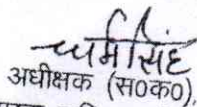 धर्म सिंह
अधीक्षक (स0क0),